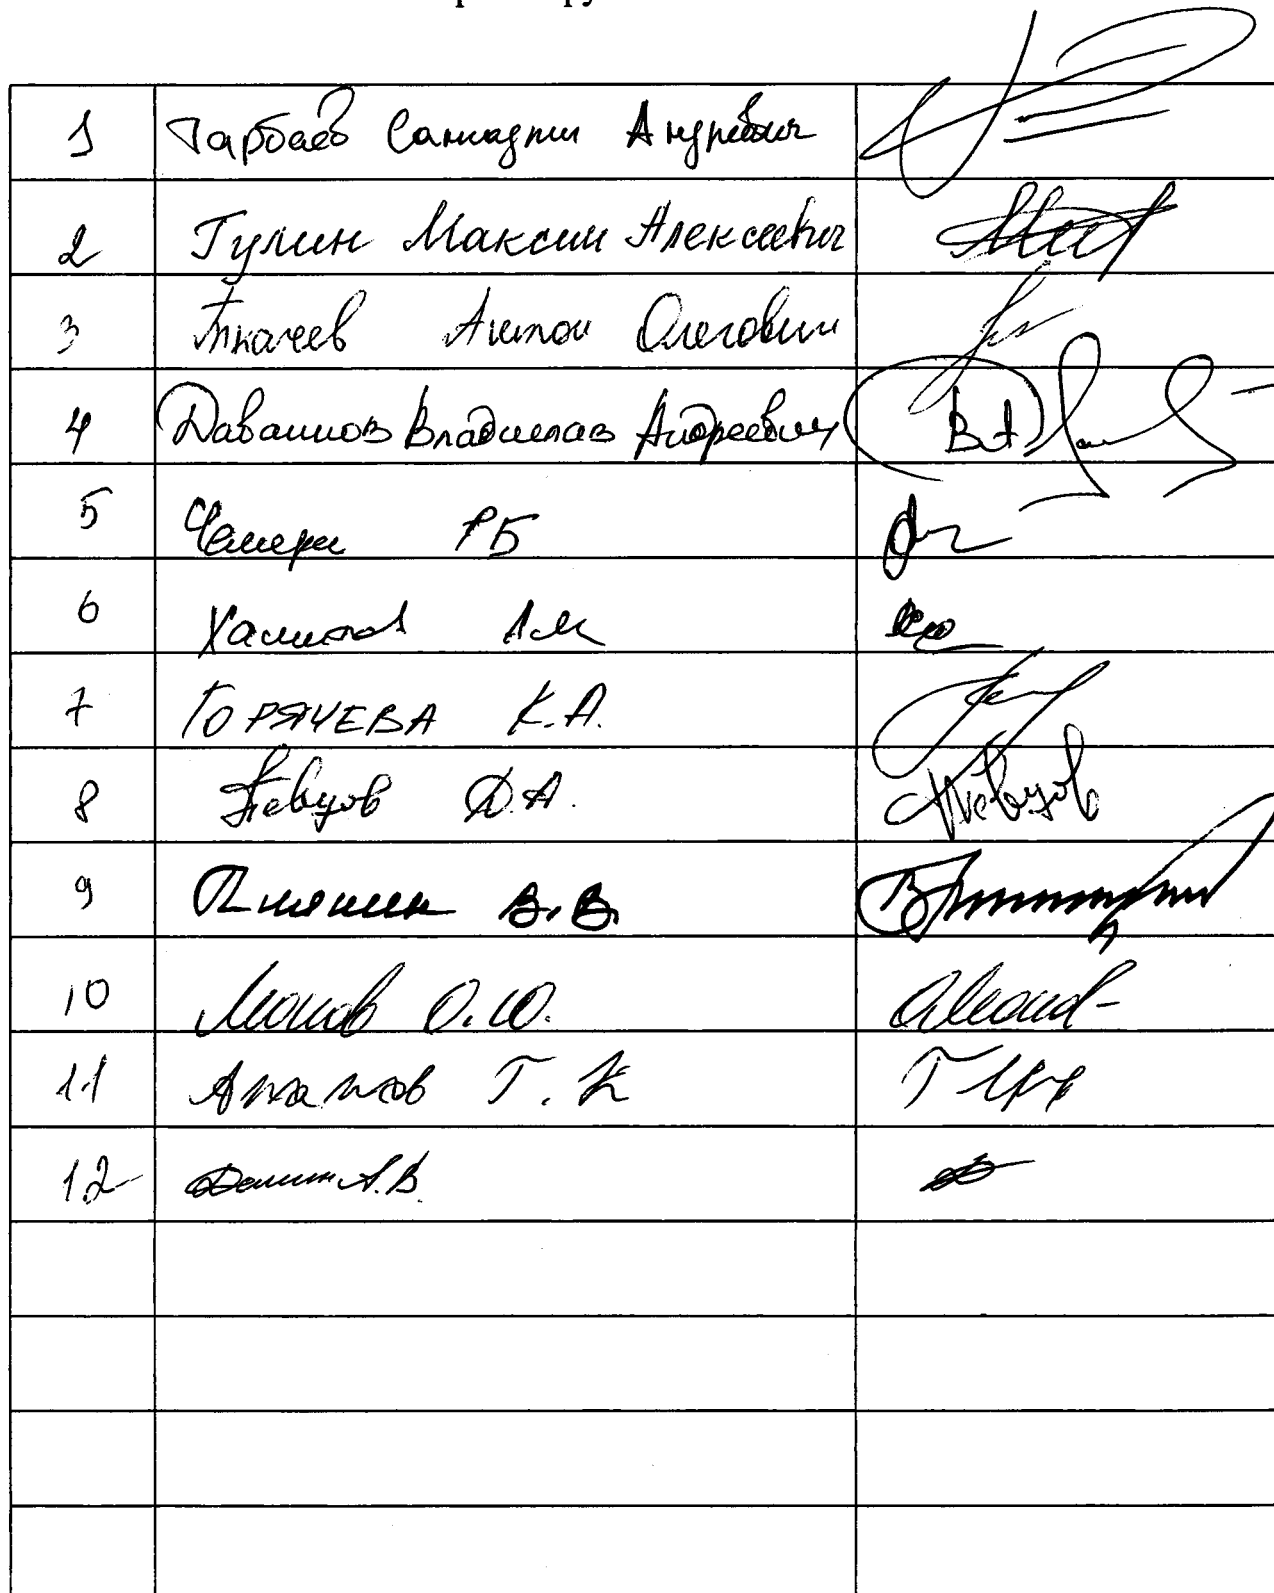 1 Тарбаев Сангаджи Андреевич
2 Гулин Максим Алексеевич
3 Ткачев Антон Олегович
4 Даванков Владислав Андреевич В.А
5 РБ
6 Хамитов А.М
7 ГОРЯЧЕВА К.А.
8 Певцов Д.А. Певцов
9 Плякин В.В.
10 Леонов О.Ю.
11 Арапов Г.К
12 Демин А.В.